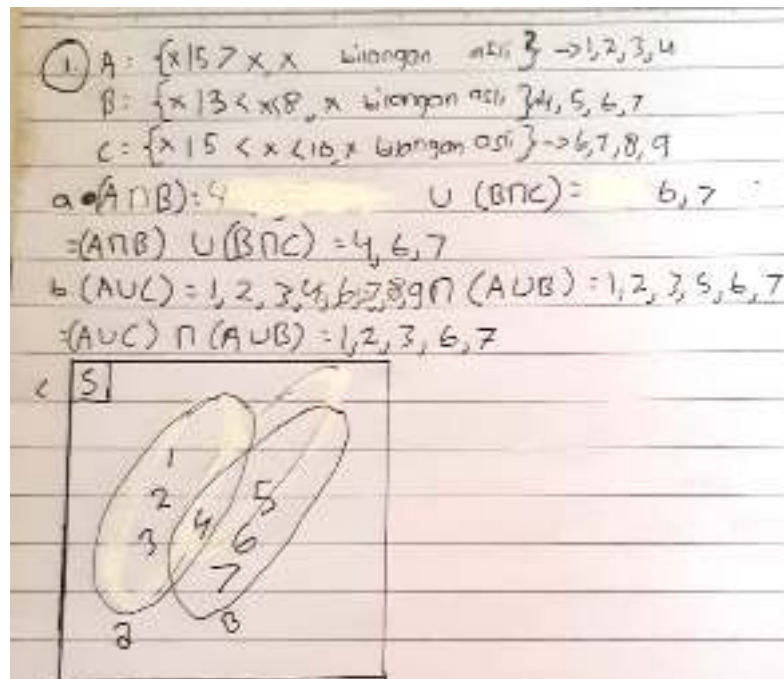 1. A = {x|5 > x, x bilangan asli} → 1, 2, 3, 4
B = {x|3 < x < 8, x bilangan asli} 4, 5, 6, 7
C = {x|5 < x < 10, x bilangan asli} → 6, 7, 8, 9
a. (A∩B) = 4 ∪ (B∩C) = 6, 7
= (A∩B) ∪ (B∩C) = 4, 6, 7
b (A∪C) = 1, 2, 3, 4, 6, 7, 8, 9 ∩ (A∪B) = 1, 2, 3, 5, 6, 7
= (A∪C) ∩ (A∪B) = 1, 2, 3, 6, 7
c S
1
2 5
3 4 6
7
a B